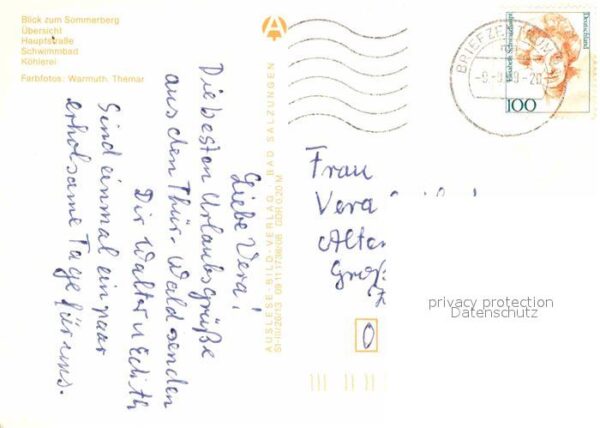 Blick zum Sommerberg
Übersicht
Hauptstraße
Schwimmbad
Köhlerei
Farbfotos: Warmuth, Themar
Liebe Vera!
Die besten Urlaubsgrüße
aus dem Thür. Wald senden
Dir Walter u Edith
Sind einmal ein paar
erholsame Tage für uns.
AUSLESE-BILD-VERLAG · BAD SALZUNGEN
GDR 0,20 M
BRIEFZENTRUM
Elisabeth Schwarzhaupt
Deutschland
100
Frau
Vera
privacy protection
Datenschutz